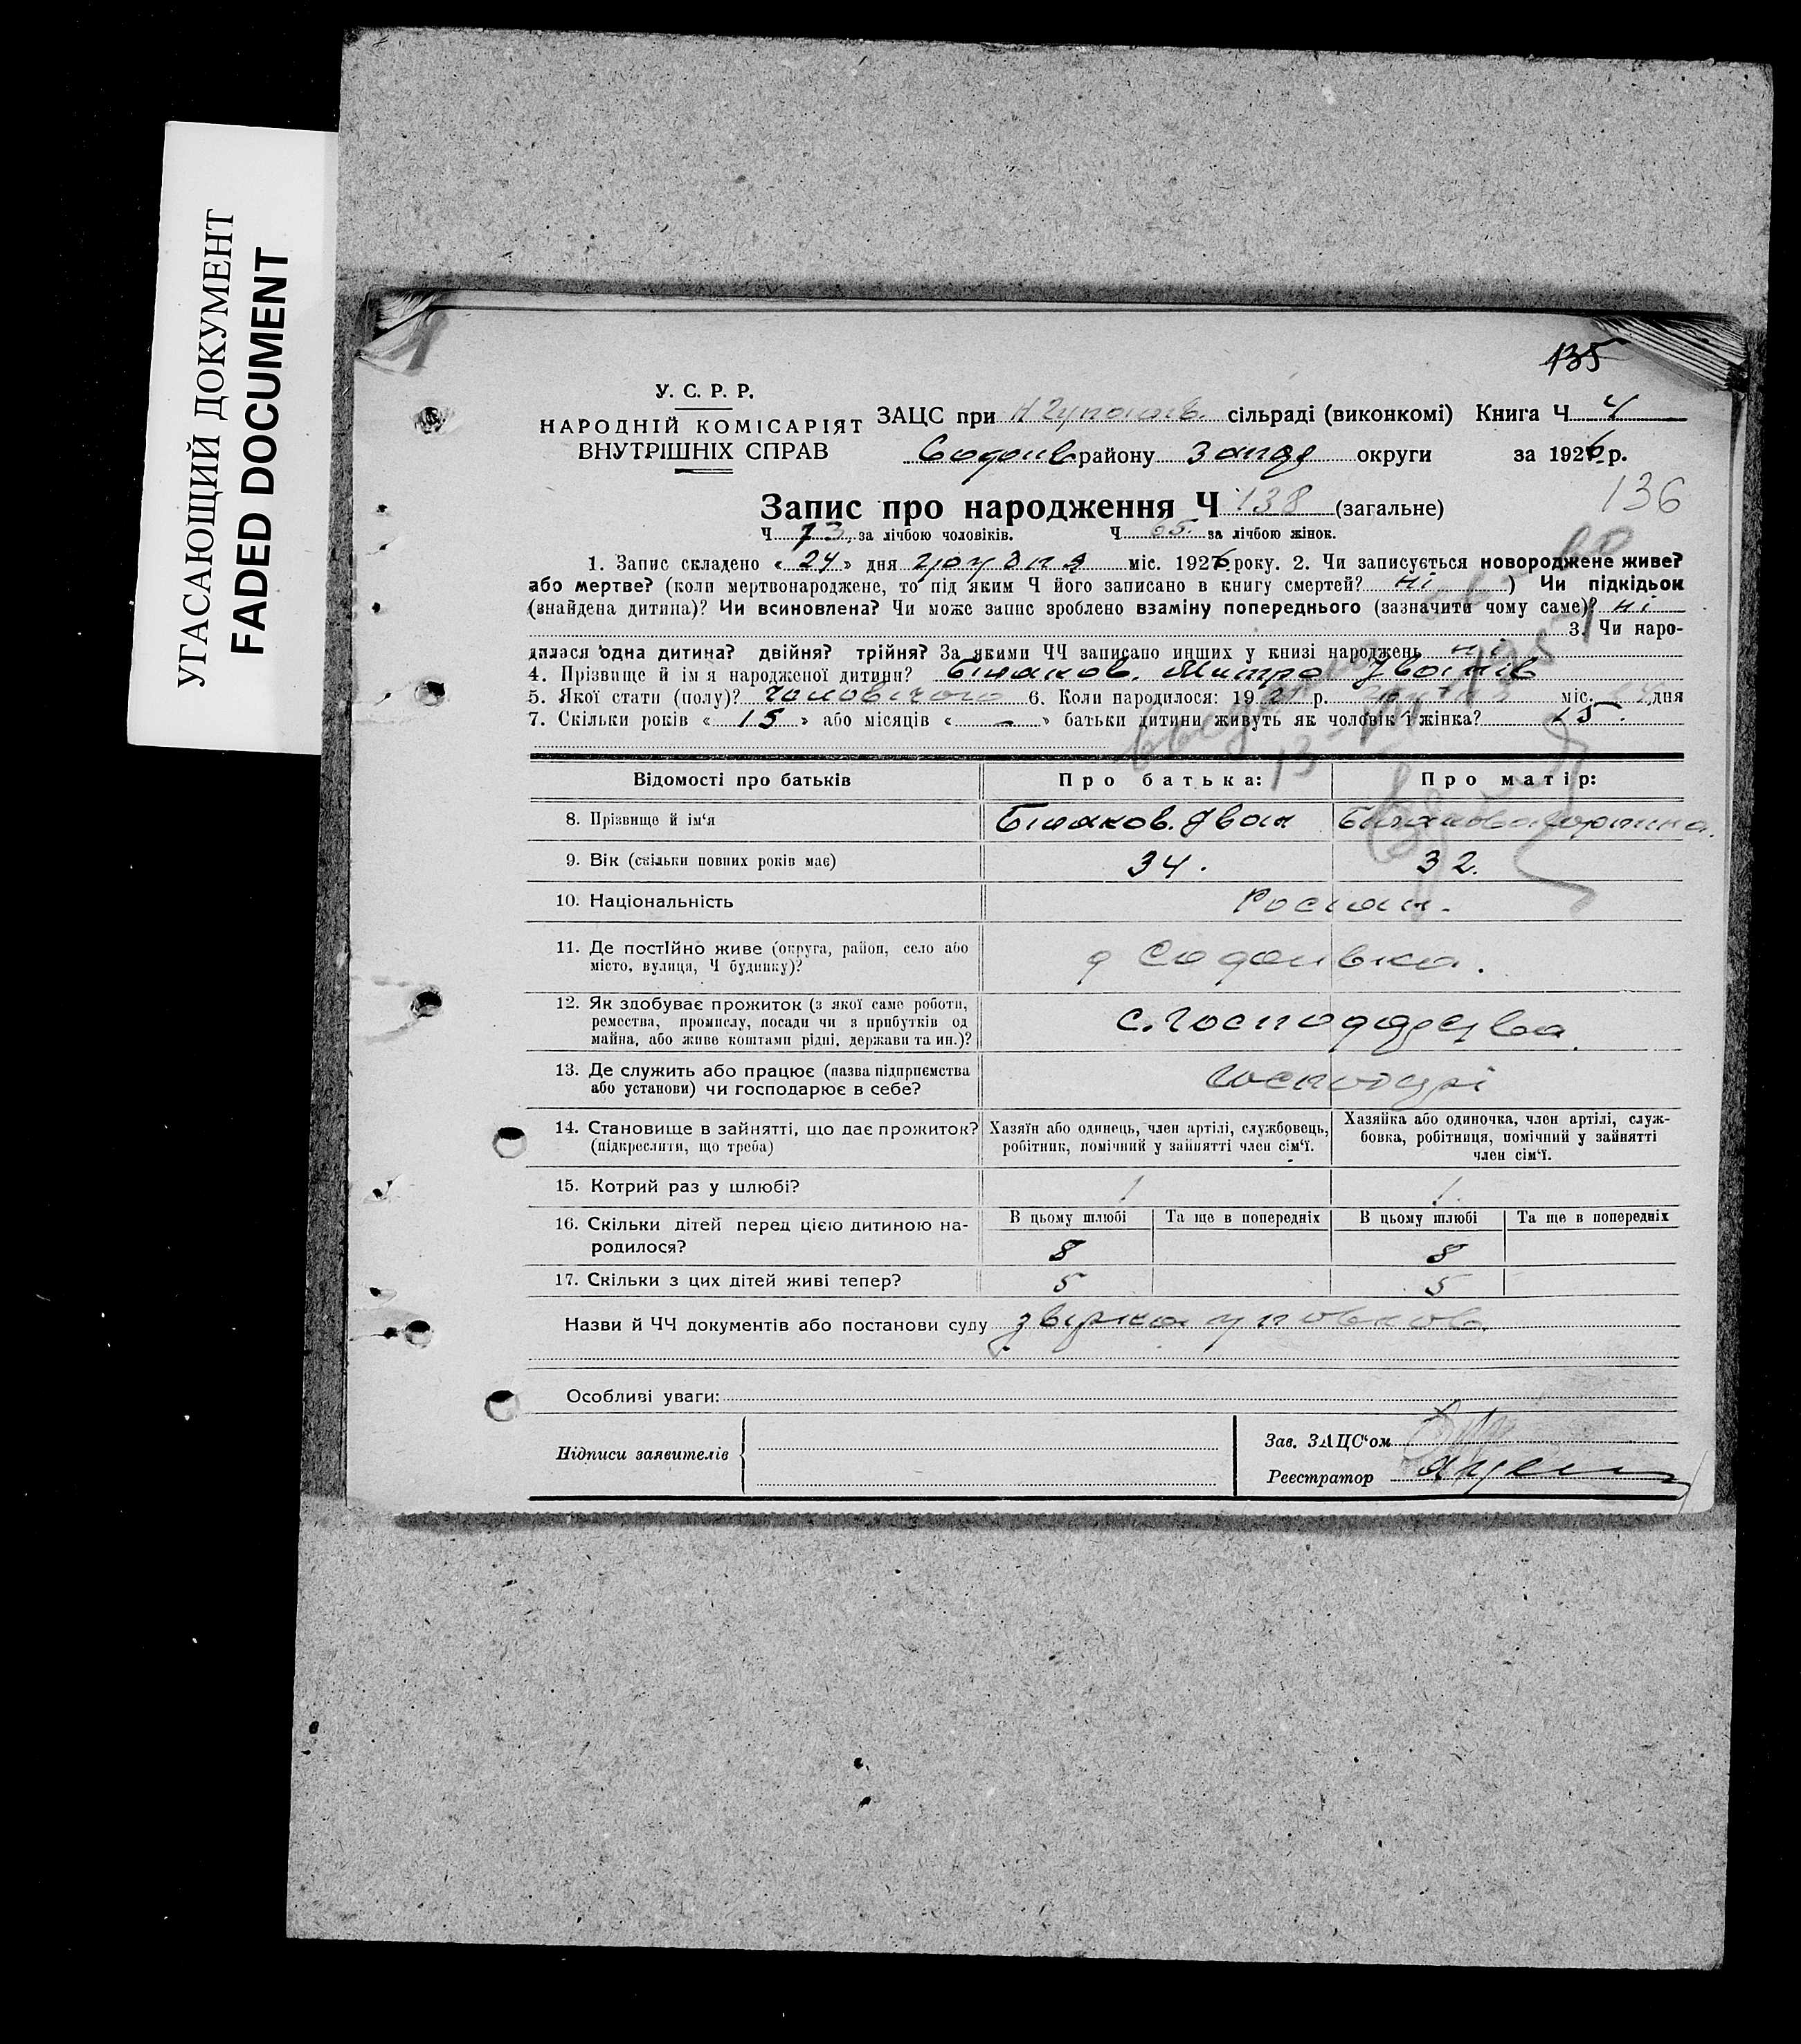 УГАСАЮЩИЙ ДОКУМЕНТ
FADED DOCUMENT
135
У. С. Р. Р.
НАРОДНІЙ КОМІСАРІЯТ
ВНУТРІШНІХ СПРАВ
ЗАЦС при сільраді (виконкомі) Книга Ч 4
району округи за 1926 р.
136
Запис про народження Ч 138 (загальне)
Ч 73 за лічбою чоловіків. Ч 65 за лічбою жінок.
1. Запис складено « 24 » дня грудня міс. 1926 року. 2. Чи записується новороджене живе?
або мертве? (коли мертвонароджене, то під яким Ч його записано в книгу смертей? ні ) Чи підкідьок
(знайдена дитина)? Чи всиновлена? Чи може запис зроблено взаміну попереднього (зазначити чому саме)? ні
3. Чи наро-
дилася одна дитина? двійня? трійня? За якими ЧЧ записано инших у книзі народжень ні
4. Прізвище й ім'я народженої дитини? Біляков. Митро Іванів
5. Якої стати (полу)? чоловічого 6. Коли народилося: 19 р. міс. дня
7. Скільки років « 15 » або місяців « - » батьки дитини живуть як чоловік і жінка? 15.
Відомості про батьків Про батька: Про матір:
8. Прізвище й ім'я Біляков. Іван Білякова
9. Вік (скільки повних років має) 34. 32.
10. Національність Росіян.
11. Де постійно живе (округа, район, село або
місто, вулиця, Ч будинку)?
12. Як здобуває прожиток (з якої саме роботи,
ремества, промислу, посади чи з прибутків од
майна, або живе коштами рідні, держави та ин.)?
13. Де служить або працює (назва підприємства
або установи) чи господарює в себе?
14. Становище в зайнятті, що дає прожиток?
(підкреслити, що треба)
Хазяїн або одинець, член артілі, службовець,
робітник, помічний у зайнятті член сім'ї.
Хазяйка або одиночка, член артілі, служ-
бовка, робітниця, помічний у зайнятті
член сім'ї.
15. Котрий раз у шлюбі? 1 1.
16. Скільки дітей перед цією дитиною на-
родилося?
В цьому шлюбі Та ще в попередніх В цьому шлюбі Та ще в попередніх
8 8
17. Скільки з цих дітей живі тепер? 5 5
Назви й ЧЧ документів або постанови суду
Особливі уваги:
Підписи заявителів
Зав. ЗАЦС'ом
Реєстратор